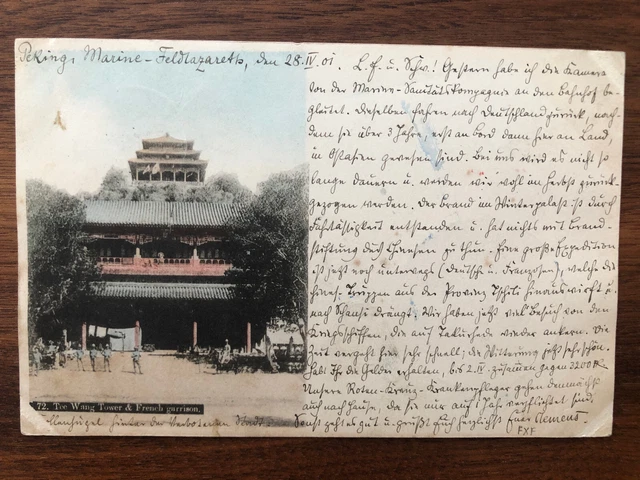 Peking, Marine-Feldlazareth, den 28.IV.01. L. E. u. Schw.! Gestern habe ich die Kamera
von der Marine-Sanitätskompagnie an den Bahnhof be-
gleitet. Dieselben fahren nach Deutschland zurück, nach-
dem sie über 3 Jahre, erst an Bord dann hier an Land,
in Ostasien gewesen sind. Bei uns wird es nicht so
lange dauern u. werden wir wohl im Herbst zurück-
gezogen werden. Der Brand im Winterpalast ist durch
Fahrlässigkeit entstanden u. hat nichts mit Brand-
stiftung durch Chinesen zu thun. Eine große Expedition
ist jetzt noch unterwegs (Deutsche u. Franzosen), welche die
chines. Truppen aus der Provinz Tschili hinauswirft u.
nach Schansi drängt. Wir haben jetzt viel Besuch von den
Kriegsschiffen, die auf Takurhede wieder ankern. Die
Zeit vergeht hier sehr schnell; die Witterung jetzt sehr schön.
Habt Ihr die Gelder erhalten, bis 2.IV. zusammen gegen 3200 M.
Unsere Roten-Kreuz-Krankenpfleger gehen demnächst
auch nach Hause, da sie nur auf 1 Jahr verpflichtet sind.
Sonst geht es gut u. grüßt Euch herzlichst Euer Clemens
FXF
72. Tee Wang Tower & French garrison.
hinter der Verbotenen Stadt